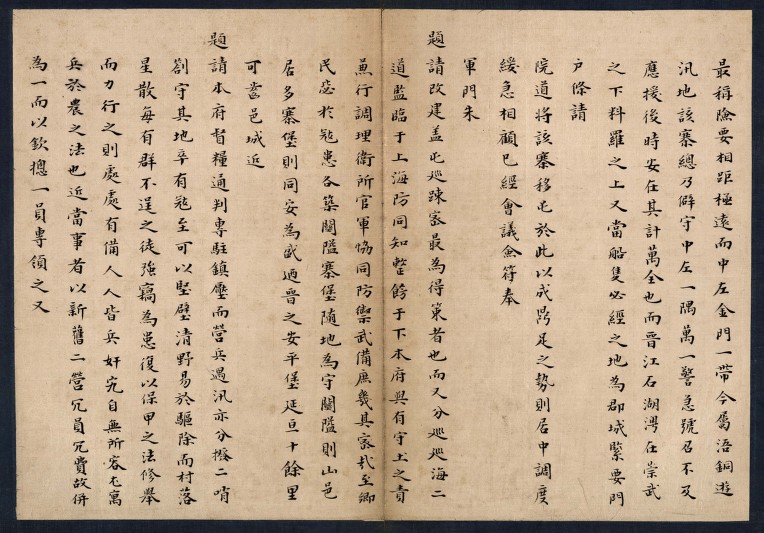 最稱險要相距極遠而中左金門一帶今屬浯銅遊
汛地該寨總乃僻守中左一隅萬一警急號召不及
應援後時安在其計萬全也而晉江石湖灣在崇武
之下料羅之上又當船隻必經之地為郡城緊要門
戶條請
院道將該寨移屯於此以成鼎足之勢則居中調度
緩急相顧已經會議僉符奉
軍門朱
題請改建盖屯廵踈宻最為得策者也而又分廵廵海二
道監臨于上海防同知整飭于下本府與有守土之責
兼行調理衛所官軍恊同防禦武備庶幾其宻哉至鄉
民苾於冦患各築關隘寨堡隨地為守關隘則山邑
居多寨堡則同安為盛廼晉之安平堡延亘十餘里
可當邑城近
題請本府督糧通判專駐鎮壓而營兵遇汛亦分撥二哨
劄守其地卒有冦至可以堅壁清野易於驅除而村落
星散每有群不逞之徒強竊為患復以保甲之法修舉
而力行之則處處有備人人皆兵奸宄自無所容尤寓
兵於農之法也近當事者以新舊二營冗員冗費故併
為一而以欽總一員專領之又